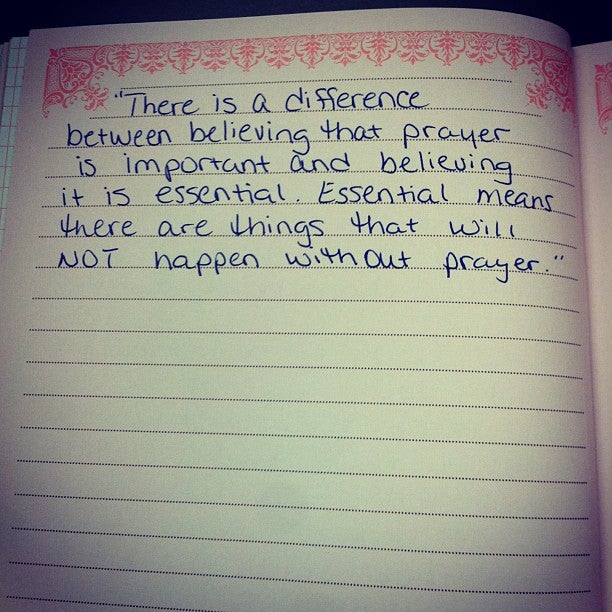 "There is a difference
between believing that prayer
is important and believing
it is essential. Essential means
there are things that will
NOT happen without prayer."